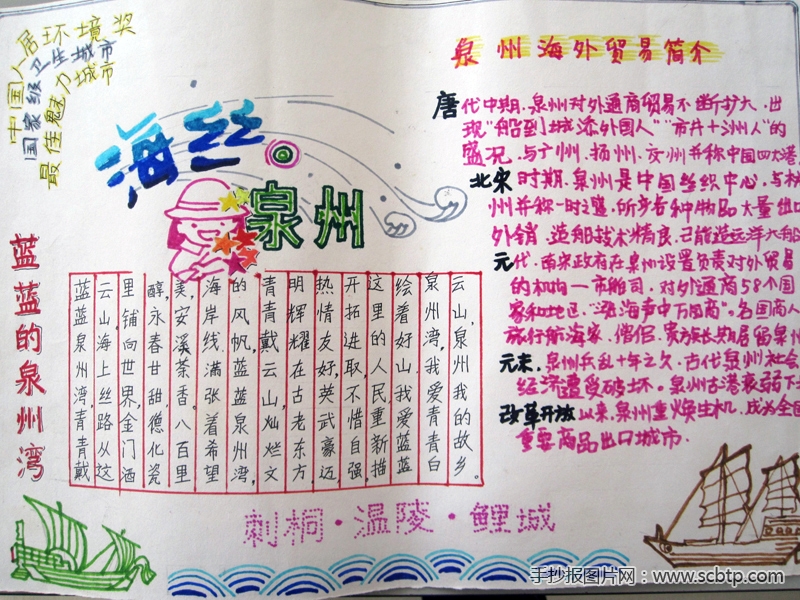 中国人居环境奖
国家级卫生城市
最佳魅力城市
海丝
泉州
蓝蓝的泉州湾
蓝蓝泉州湾,青青戴
云山海上丝路从这
里铺向世界,金门酒
醇,永春甘甜德化瓷
美,安溪茶香,八百里
海岸线,满张着希望
的风帆蓝蓝泉州湾,
青青戴云山,灿烂文
明辉耀在古老东方,
热情友好,英武豪迈,
开拓进取,不惜自强,
这里的人民重新描
绘着好山,我爱蓝蓝
泉州湾,我爱青青白
云山,泉州我的故乡。
泉州海外贸易简介
唐代中期、泉州对外通商贸易不断扩大,出
现"船到城添外国人""市井十洲人"的
盛况,与广州、扬州、交州并称中国四大港
北宋时期,泉州是中国丝织中心,与杭
州并称一时之盛,所产各种物品大量出口
外销,造船技术精良,已能造远洋大船
元代,南宋政府在泉州设置负责对外贸易
的机构—市舶司,对外通商58个国
家和地区,"涨海声中万国商"。各国商人
旅行航海家、僧侣、贵族长期居留泉州
元末,泉州兵乱十年之久,古代泉州社会
经济遭受破坏。泉州古港衰弱下去
改革开放以来,泉州重焕生机,成为全国
重要商品出口城市.
刺桐·温陵·鲤城
手抄报图片网:www.scbtp.com